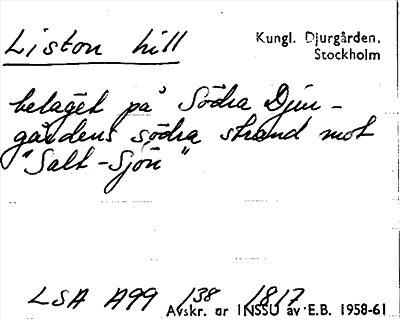 Liston hill
Kungl. Djurgården,
Stockholm
belaget på Södra Djur-
gårdens södra strand mot
"Salt-Sjön"
LSA A99 138 1817
Avskr. ur INSSU av E.B. 1958-61